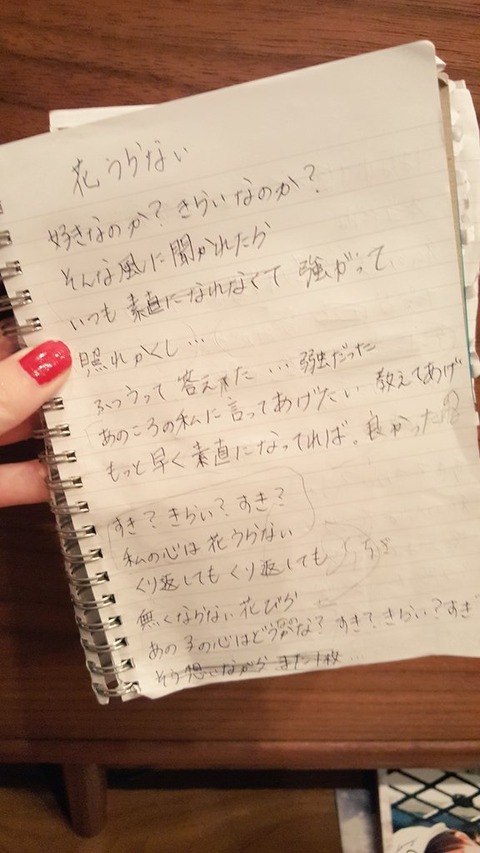 花うらない
好きなのか？きらいなのか？
そんな風に聞かれたら
いつも 素直になれなくて 強がって
照れかくし…
ふつうって 答えた … 弱虫だった
あのころの私に言ってあげたい 教えてあげ
もっと早く素直になってれば。良かった
すき？きらい？すき？
私の心は花うらない
くり返しても くり返しても
無くならない花びら
あの子の心はどうかな？ すき？きらい？すき
そう想いながら また1枚…